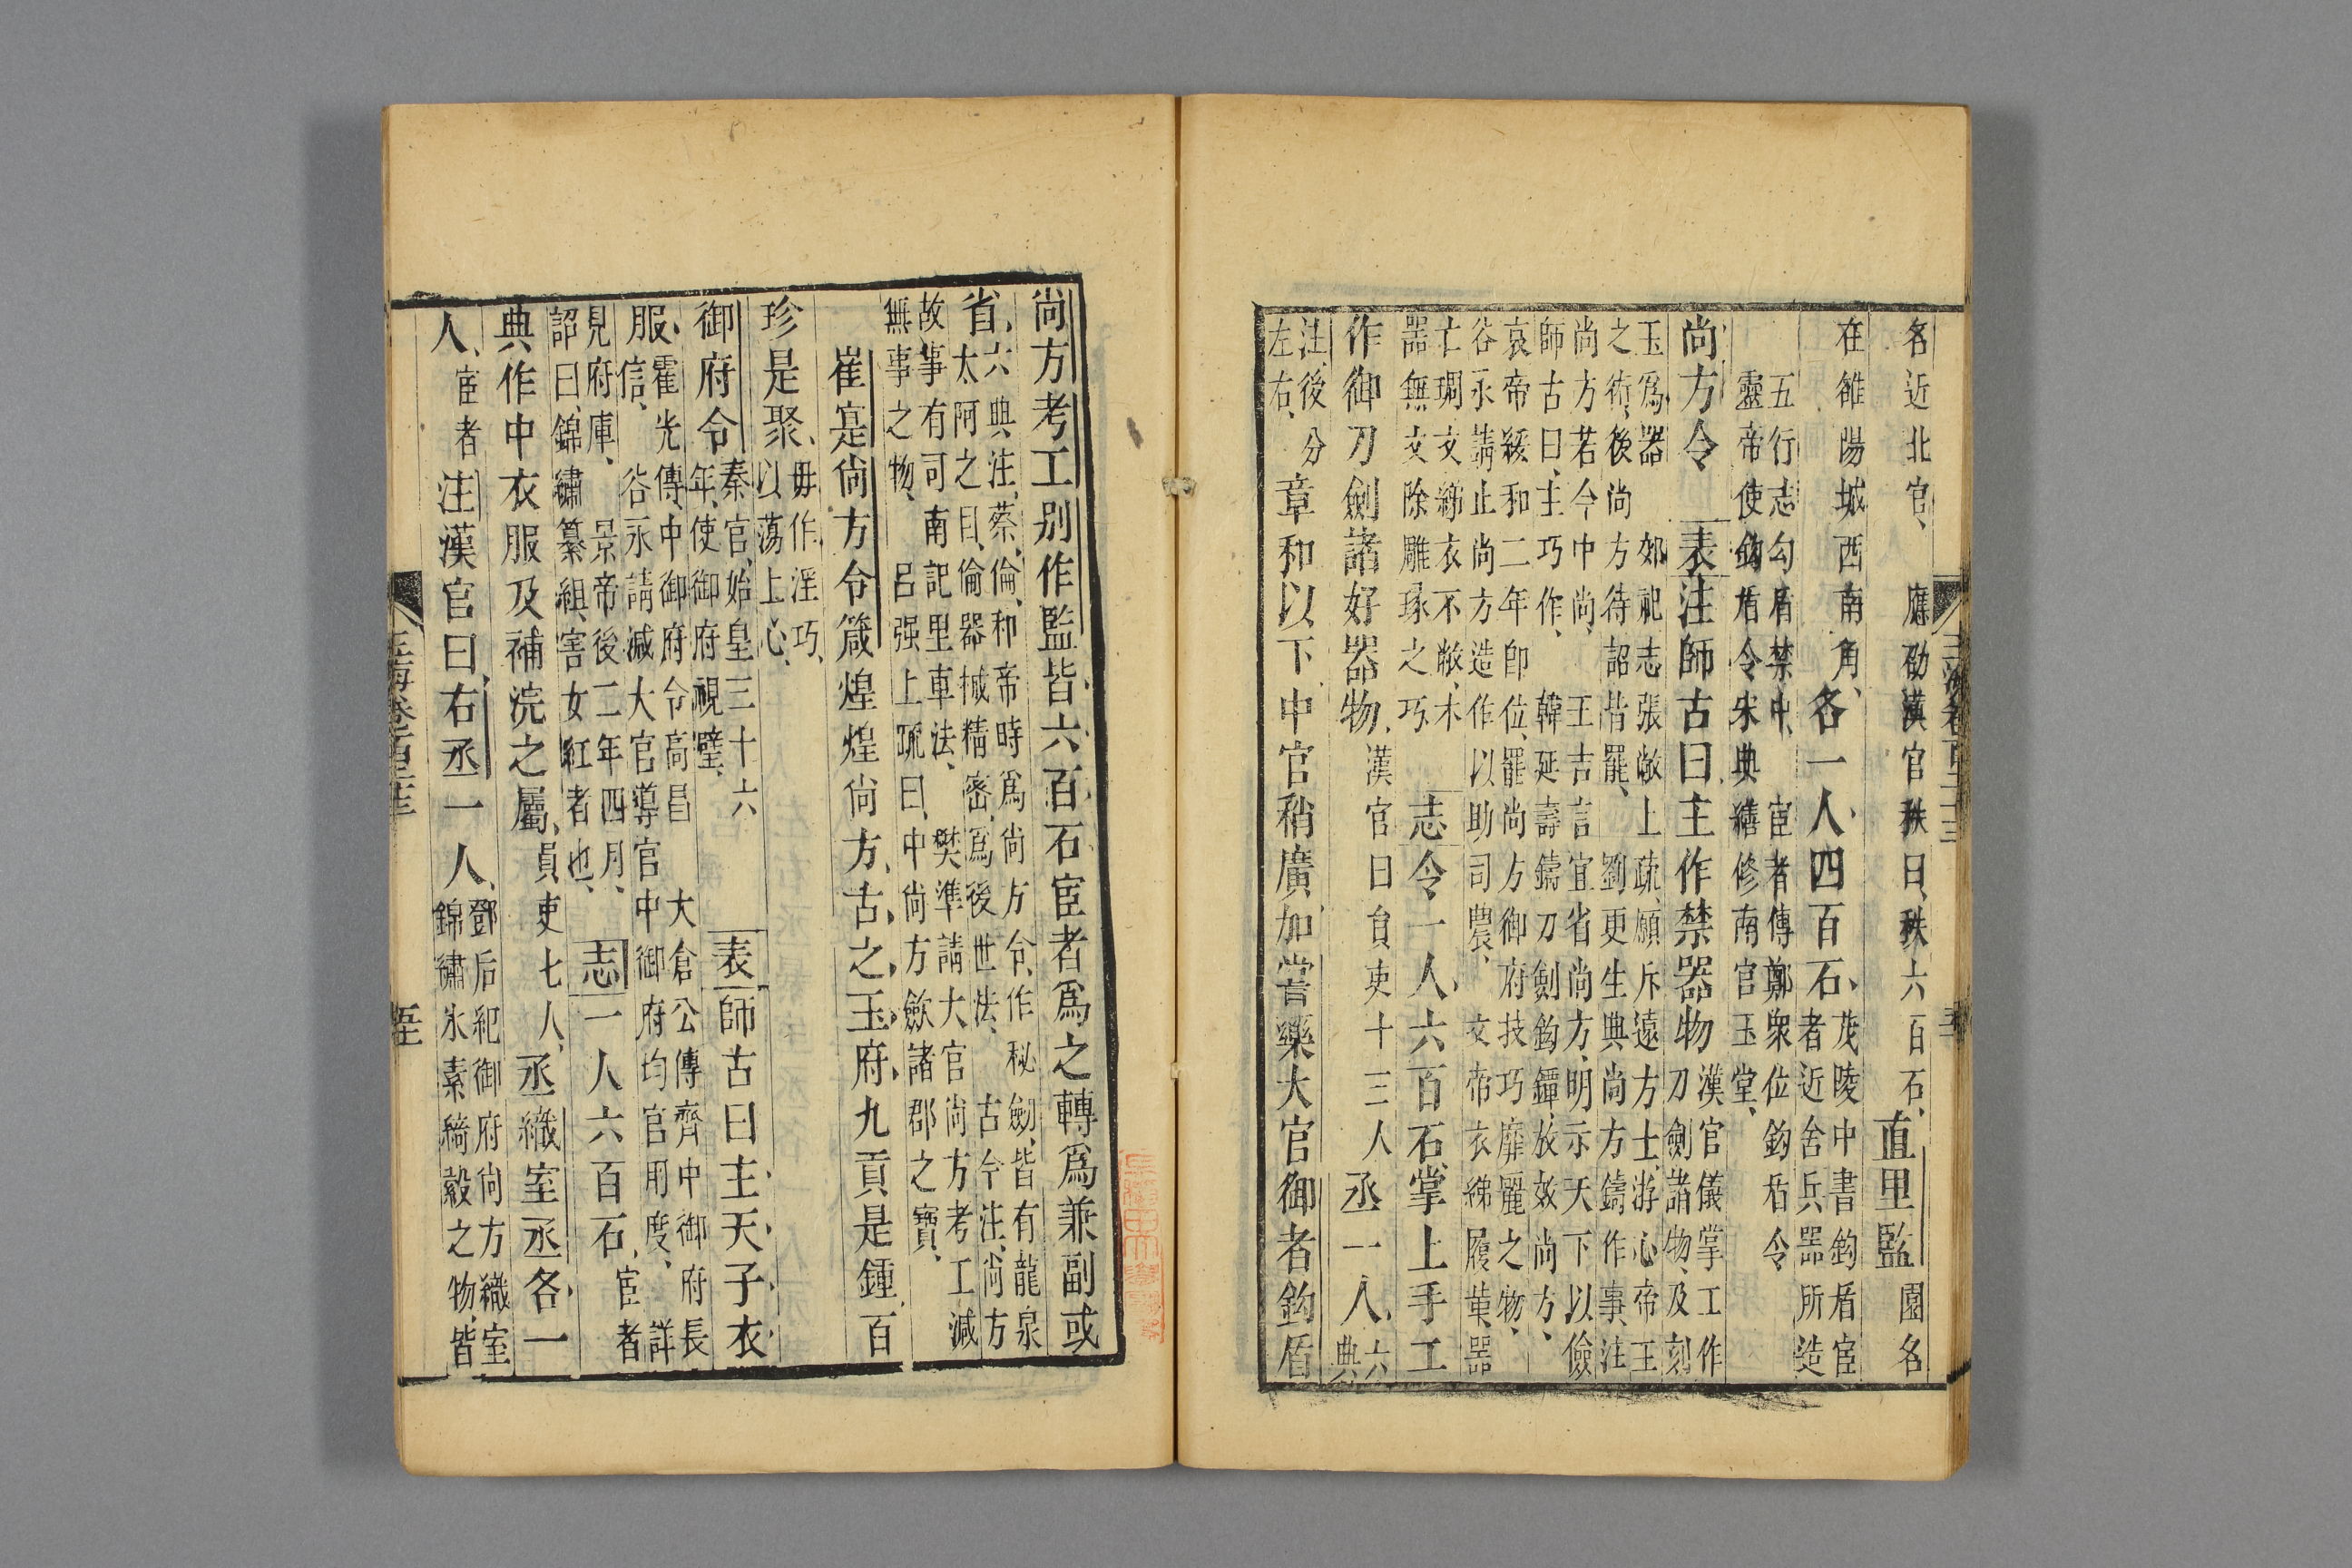 名近北宮、應劭漢官秩曰、秩六百石、直里監園名
在雒陽城西南角、各一人四百石、茂陵中書鉤盾宦
者近舍兵器所造
五行志勾盾禁中、宦者傳鄭衆位鉤盾令
靈帝使鉤盾令宋典繕修南宮玉堂、
尚方令表注師古曰主作禁器物漢官儀掌工作
刀劍諸物及刻
玉爲器郊祀志張敞上疏、願斥遠方士游心帝王
之術、後尚方待詔皆罷、劉更生典尚方鑄作事、注
尚方若今中尚、王吉言宜省尚方、明示天下以儉
師古曰、主巧作、韓延壽鑄刀劍鉤鐔、放效尚方、
哀帝綏和二年卽位、罷尚方御府技巧靡麗之物、
谷永請止尚方造作以助司農、文帝衣綈履革、器
亡琱文綈衣不敝、木
器無文除雕琢之巧志令一人、六百石、掌上手工
作御刀劍諸好器物、漢官曰員吏十三人丞一人、六
典
注、後分
左右、章和以下中官稍廣、加嘗藥大官御者鉤盾
尚方考工别作監皆六百石宦者爲之轉爲兼副或
省、六典注、蔡倫、和帝時爲尚方令、作秘劒、皆有龍泉
太阿之目、倫器械精密、爲後世法、古今注、尚方
故事有司南記里車法、樊準請大官尚方考工減
無事之物、呂强上疏曰、中尚方歛諸郡之寶、
崔寔尚方令箴煌煌尚方、古之玉府、九貢是鍾、百
珍是聚、毋作淫巧、
以蕩上心、
御府令秦官、始皇三十六
年、使御府視璧、表師古曰主天子衣
服、霍光傳、中御府令高昌大倉公傳齊中御府長
信、谷永請減大官導官中御府均官用度、詳
見府庫、景帝後二年四月、
詔曰、錦繡纂組、害女紅者也、志一人六百石、宦者
典作中衣服及補浣之屬、員吏七人、丞織室丞各一
人、宦者注漢官曰、右丞一人、鄧后紀御府尚方織室
錦繡氷素綺縠之物、皆